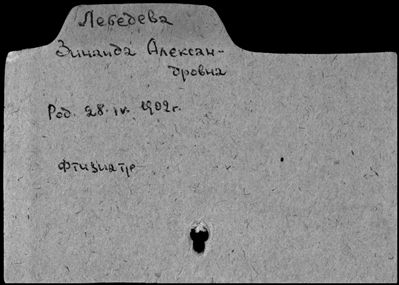 Лебедева
Зинаида Алексан-
дровна
Род. 28. IV. 1902 г.
Фтизиатр